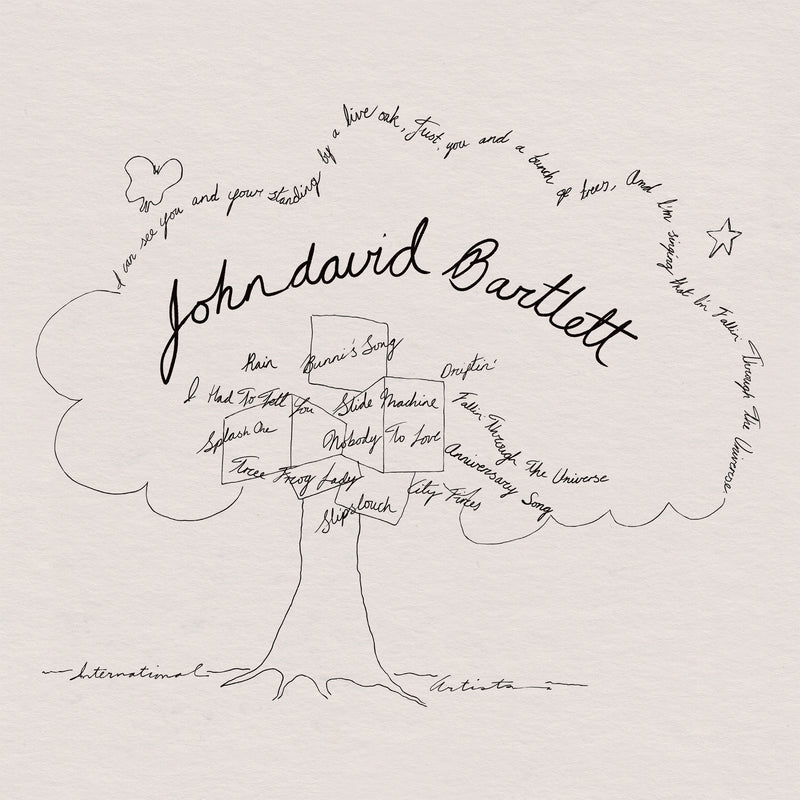 I can see you and your standing by a live oak, Just, you and a bunch of trees, And I'm singing that I'm Fallin' Through The Universe.
Johndavid Bartlett
Rain
Bunni's Song
Driftin'
I Had To Tell You
Slide Machine
Fallin Through The Universe
Splash One
Nobody To Love
Anniversary Song
Tree Frog Lady
City Pines
Slipslouch
International
Artists